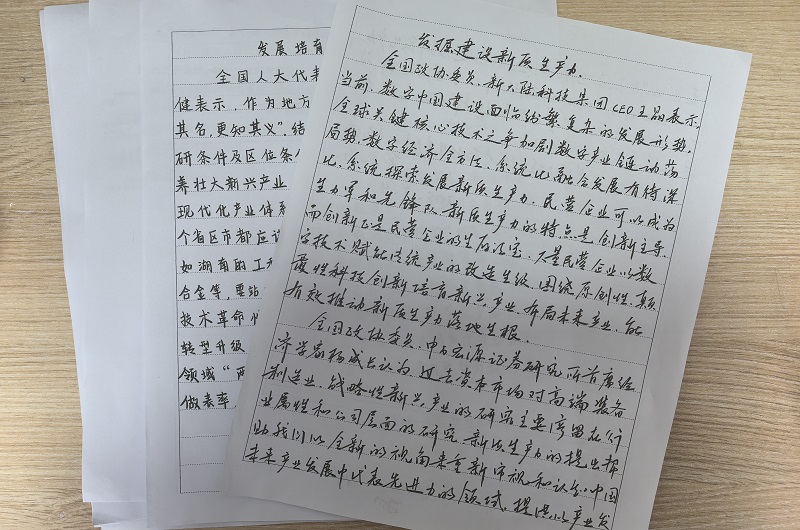 发展培育
全国人大代表
健表示,作为地方
其名,更知其义”,结
研条件及区位条件
养壮大新兴产业
现代化产业体系
个省区市都应该
如湖南的工
合金等,要
技术革命
转型升级
领域“两
做表率,
发掘建设新质生产力.
全国政协委员、新大陆科技集团CEO王晶表示,
当前,数字中国建设面临纷繁复杂的发展形势.
全球关键核心技术之争加剧数字产业链动荡
局势,数字经济全方法、系统化融合发展有待深
化,系统探索发展新质生产力,民营企业可以成为
生力军和先锋队.新质生产力的特点是创新主导,
而创新正是民营企业的生存法宝.大量民营企业以数
字技术赋能传统产业的改造升级,围绕原创性、颠
覆性科技创新培育新兴产业、布局未来产业,能
有效推动新质生产力落地生根.
全国政协委员、申万宏源证券研究所首席经
济学家杨成长认为,过去资本市场对高端装备
制造业、战略性新兴产业的研究主要停留在行
业属性和公司层面的研究.新质生产力的提出帮
助我们以全新的视角来重新审视和认知中国
未来产业发展中代表先进力的领域,提供以产业发